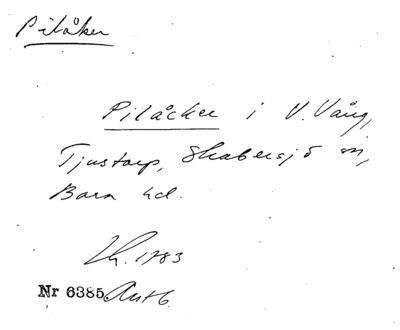 Pilåker
Pilåcker i V. Vång,
Tjustorp, Skabersjö sn,
Bara hd.
1783
Nr 6385